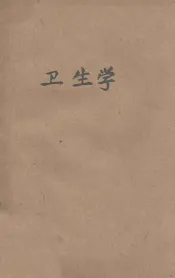 卫生学